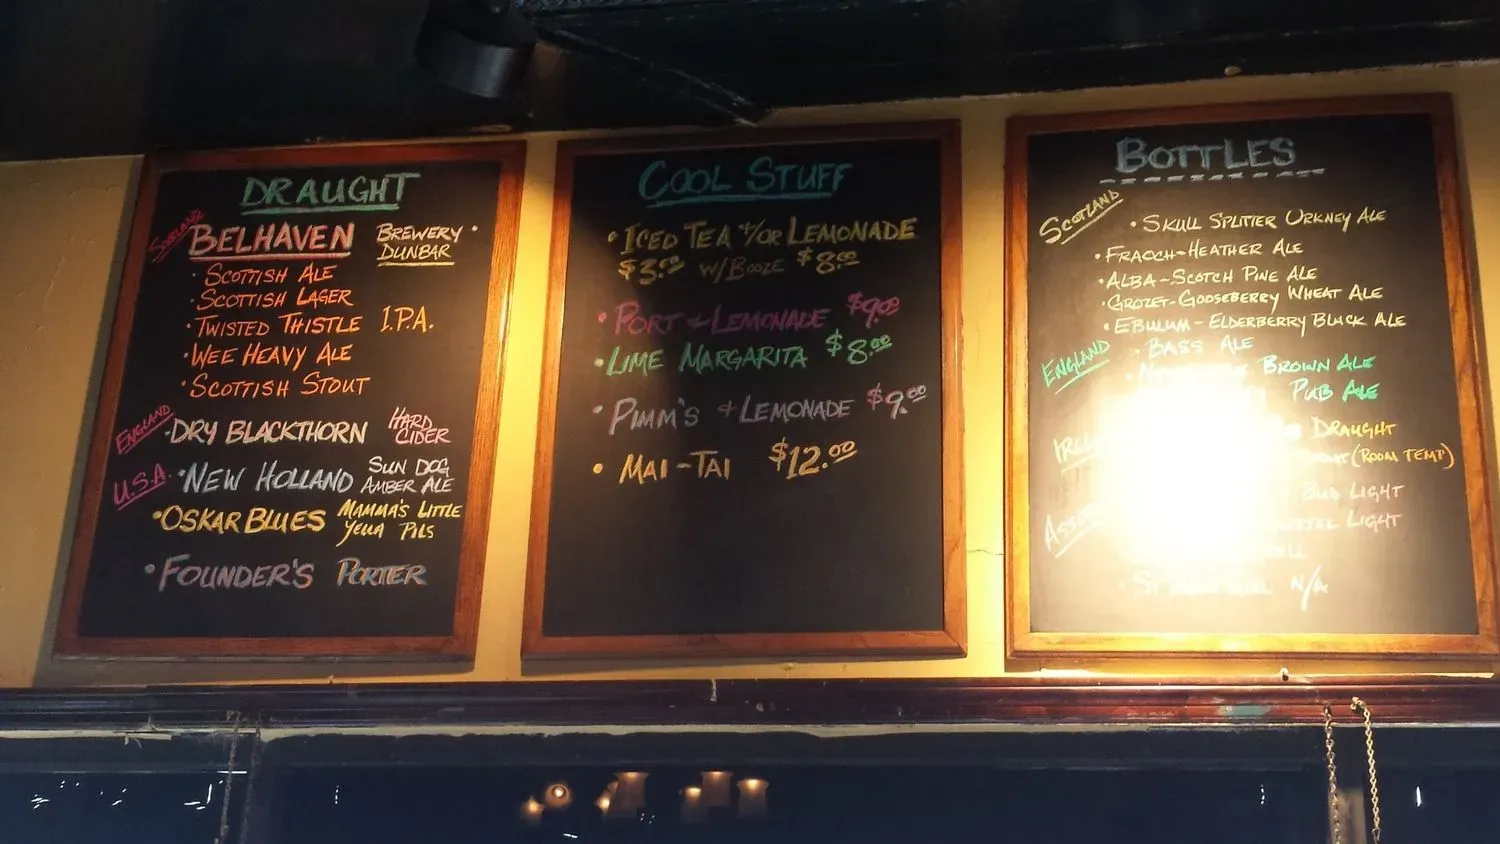 DRAUGHT
SCOTLAND
BELHAVEN BREWERY
DUNBAR
· SCOTTISH ALE
· SCOTTISH LAGER
· TWISTED THISTLE I.P.A.
· WEE HEAVY ALE
· SCOTTISH STOUT
ENGLAND
· DRY BLACKTHORN HARD
CIDER
U.S.A
· NEW HOLLAND SUN DOG
AMBER ALE
· OSKAR BLUES MAMMA'S LITTLE
YELLA PILS
· FOUNDER'S PORTER
COOL STUFF
· ICED TEA +/OR LEMONADE
$3.00 W/BOOZE $8.00
· PORT + LEMONADE $9.00
· LIME MARGARITA $8.00
· PIMM'S + LEMONADE $9.00
· MAI-TAI $12.00
BOTTLES
SCOTLAND
· SKULL SPLITTER ORKNEY ALE
· FRAOCH-HEATHER ALE
· ALBA-SCOTCH PINE ALE
· GROZET-GOOSEBERRY WHEAT ALE
· EBULUM-ELDERBERRY BLACK ALE
ENGLAND
· BASS ALE
BROWN ALE
PUB ALE
DRAUGHT
(ROOM TEMP)
BUD LIGHT
LIGHT
N/A